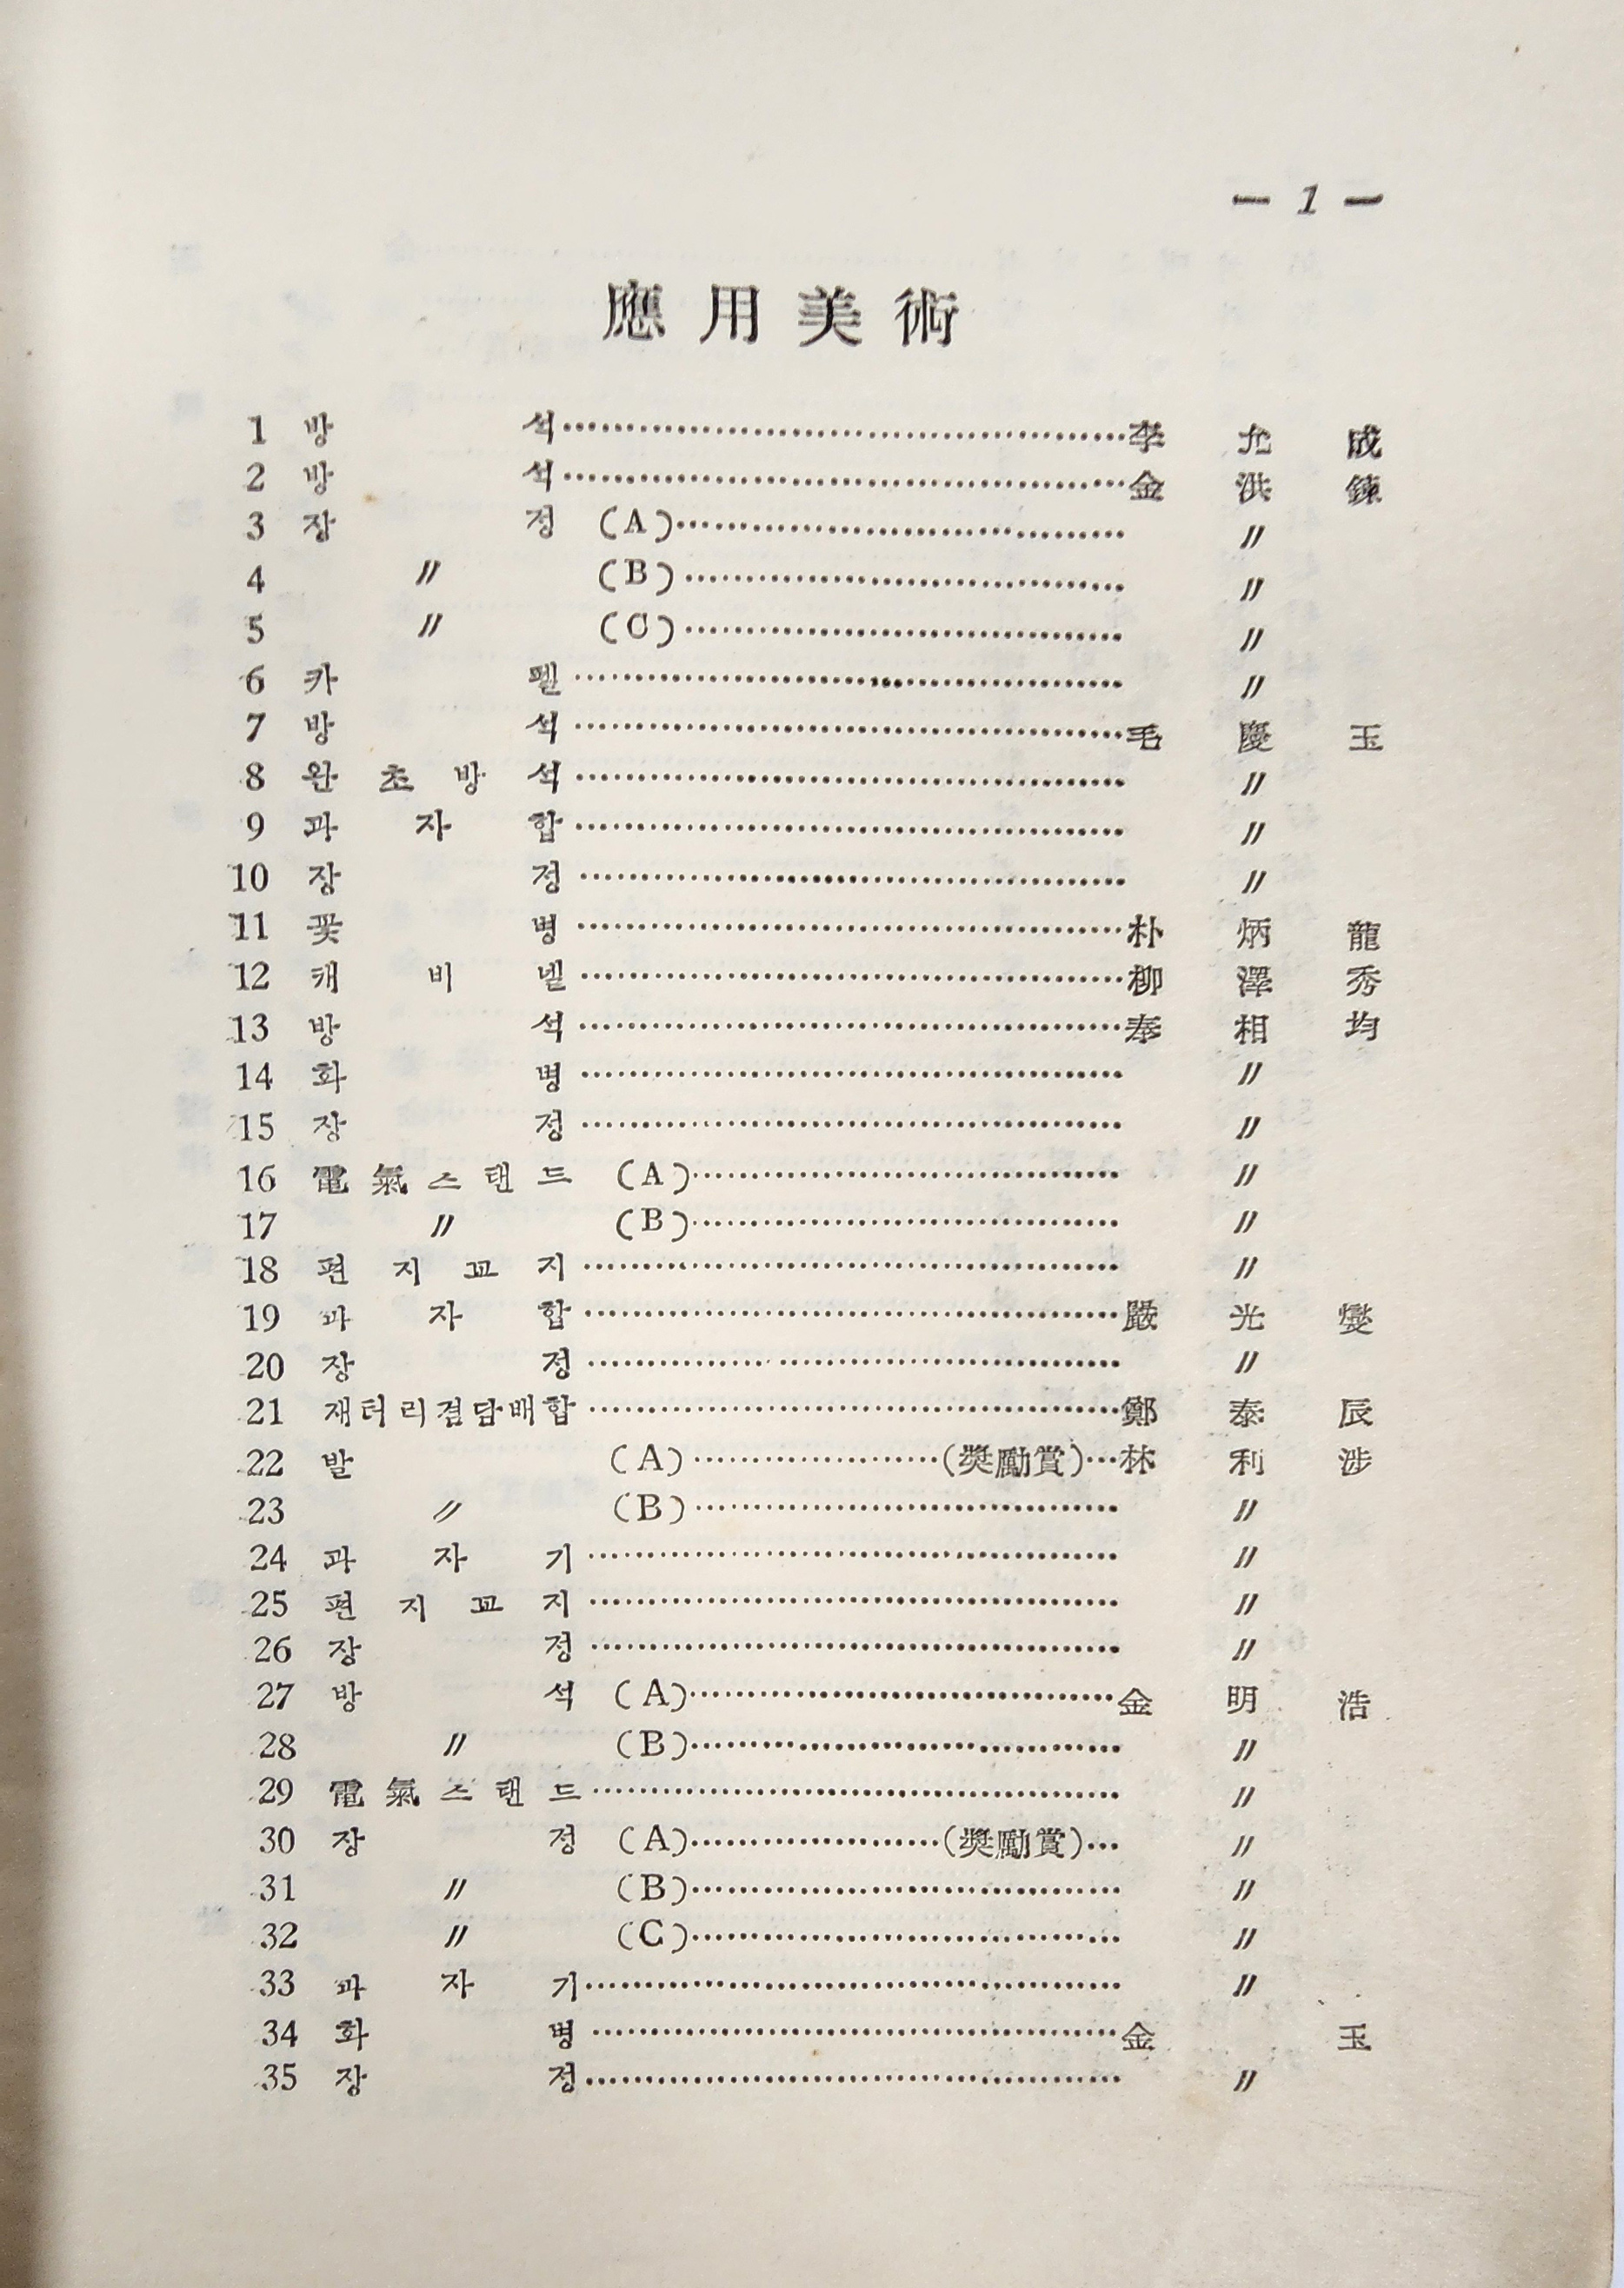 — 1 —
應用美術
1 방 석 李允成
2 방 석 金洪鍊
3 장 정 (A) 〃
4 〃 (B) 〃
5 〃 (C) 〃
6 카 펠 〃
7 방 석 毛慶玉
8 완초방석 〃
9 과자합 〃
10 장 정 〃
11 꽃 병 朴炳龍
12 캐비넽 柳澤秀
13 방 석 奉相均
14 화 병 〃
15 장 정 〃
16 電氣스탠드 (A) 〃
17 〃 (B) 〃
18 편지꼬지 〃
19 과자합 嚴光燮
20 장 정 〃
21 재터리겸담배합 鄭泰辰
22 발 (A) (奬勵賞) 林利涉
23 〃 (B) 〃
24 과자기 〃
25 편지꼬지 〃
26 장 정 〃
27 방 석 (A) 金明浩
28 〃 (B) 〃
29 電氣스탠드 〃
30 장 정 (A) (奬勵賞) 〃
31 〃 (B) 〃
32 〃 (C) 〃
33 과자기 〃
34 화 병 金玉
35 장 정 〃